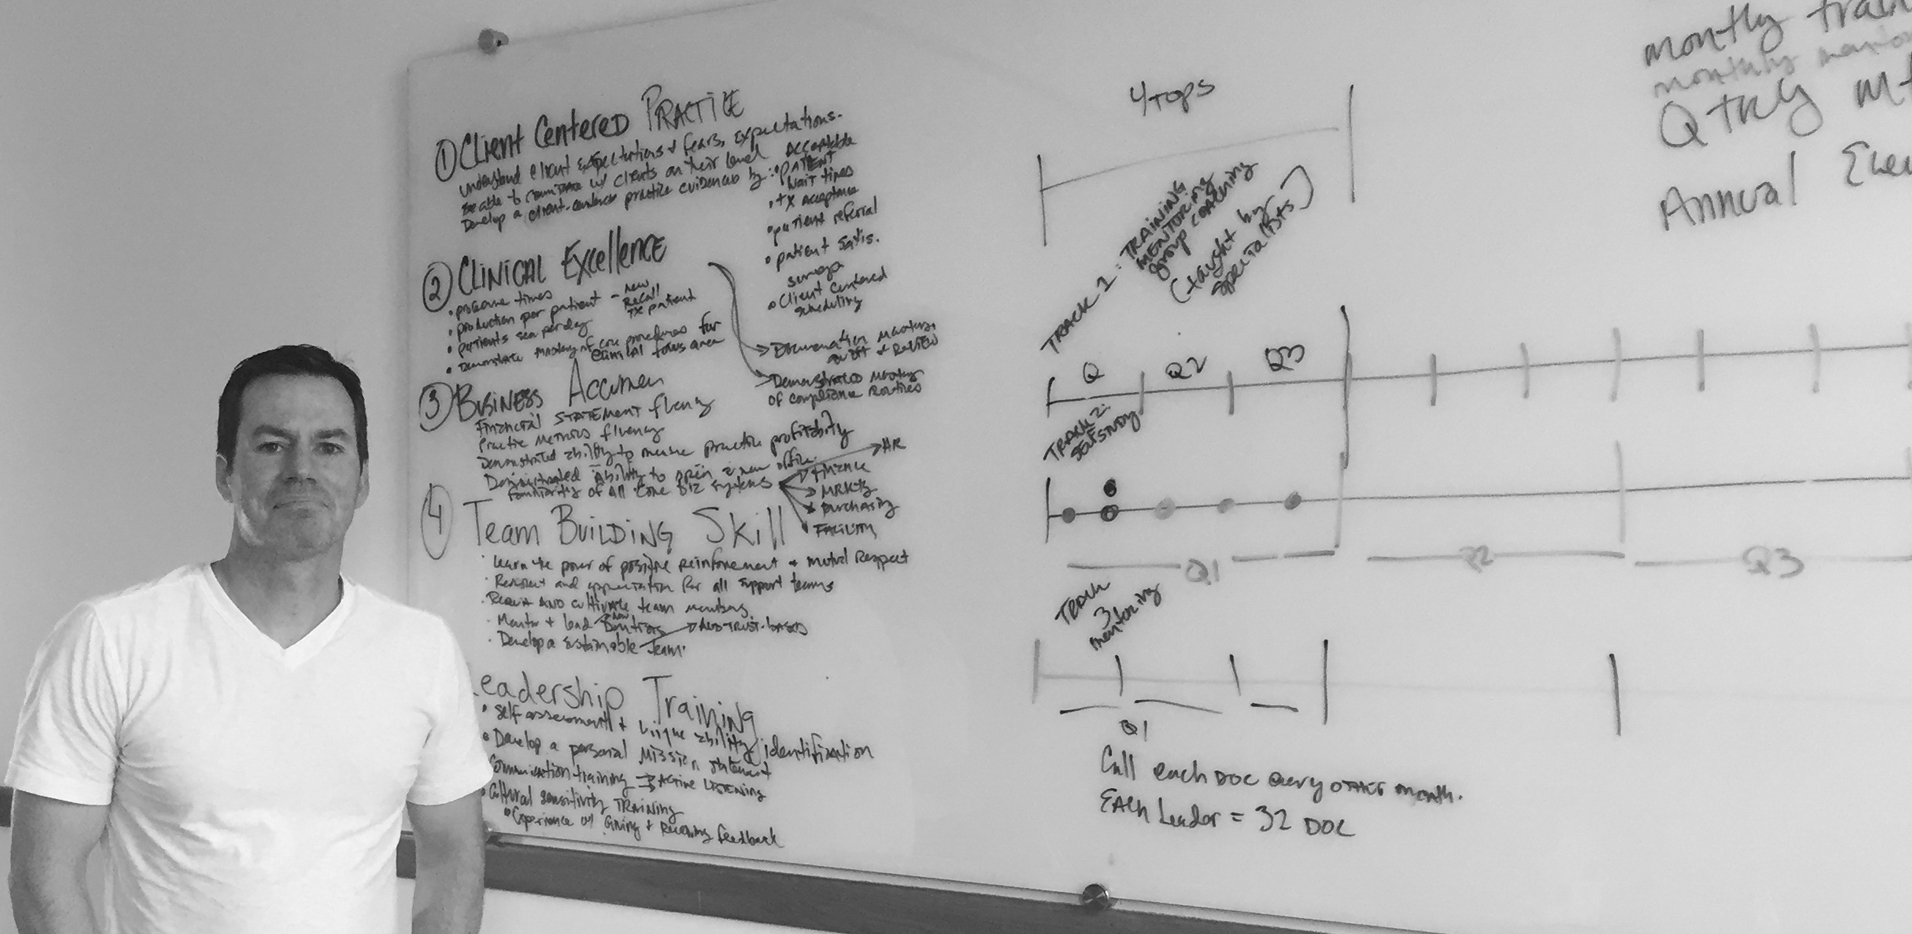 ① Client Centered PRACTICE
understand client expectations & fears, expectations.
Be able to communicate w/ clients on their level
Develop a client-centered practice evidenced by:
• Acceptable PATIENT wait times
• tx acceptance
• patient referral
• patient satis. surveys
• Client Centered scheduling
② CLINICAL Excellence
• procedure times
• production per patient - new
Recall
TX patient
• patients seen per day
• Demonstrate mastery of core procedures for clinical focus area
→ Documentation mastery, audit & REVIEW
→ Demonstrated mastery of compliance routines
③ BUSINESS Accumen
Financial STATEMENT fluency
Practice metrics fluency
Demonstrated ability to make practice profitability
Demonstrated Ability to open a new office
familiarity of All core biz systems
→ HR
→ finance
→ MRKTG
→ purchasing
→ FACILITY
④ Team BUILDING Skill
• Learn the power of positive reinforcement & mutual Respect
• Respect and appreciation for all support teams
• Recruit AND cultivate team members
• Mentor + lead new Dentists
• Develop a sustainable team
Leadership Training
• Self assessment + unique ability identification
• Develop a personal mission statement
Communication training → Active LISTENING
• Cultural sensitivity TRAINING
• Experience w/ Giving + Receiving feedback
4 TOPS
TRACK 1: TRAINING
MENTORING
group coaching
(taught by
specialists)
Q Q2 Q3
TRACK 2:
SELF STUDY
Q1 Q2 Q3
TRACK
3
mentoring
Q1
Call each DOC every OTHER month.
EACH Leader = 32 DOC
montly train
monthly mento
Qtrly mt
Annual